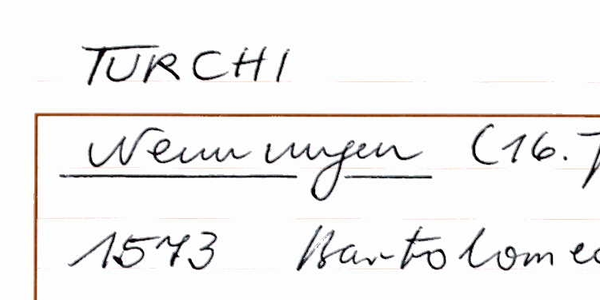 TURCHI
Nennungen (16. J
1573 Bartolomeo